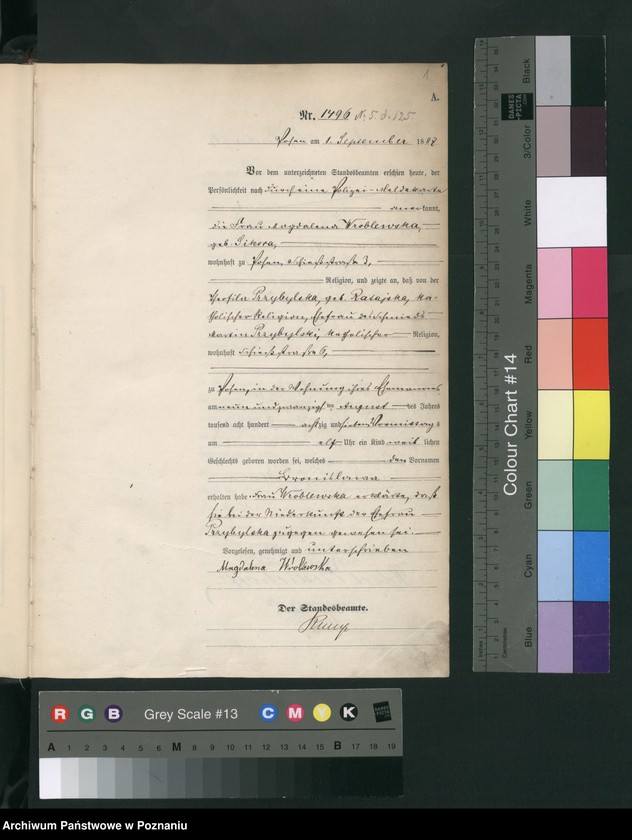 1
A.
Nr. 1496
Posen am 1. September 1887
Vor dem unterzeichneten Standesbeamten erschien heute, der
Persönlichkeit nach durch eine Polizei-Meldekarte
anerkannt,
die Frau Magdalena Wroblewska,
geb. Sikora,
wohnhaft zu Posen, Schießstraße 3,
Religion, und zeigte an, daß von der
Theofila Przybylska, geb. Ratajska, ka-
tholischer Religion, Ehefrau des Schmieds
Martin Przybylski, katholischer Religion,
wohnhaft Schießstraße 6,
zu Posen, in der Wohnung ihres Ehemannes
am neunundzwanzigsten August des Jahres
tausend acht hundert achtzig und sieben Vormittags
um elf Uhr ein Kind weiblichen
Geschlechts geboren worden sei, welches den Vornamen
Bronislawa
erhalten habe. Frau Wroblewska erklärte, daß
sie bei der Niederkunft der Ehefrau
Przybylska zugegen gewesen sei.
Vorgelesen, genehmigt und unterschrieben
Magdalena
Der Standesbeamte.
Colour Chart #14
Black
3/Color
White
Magenta
Red
Yellow
Green
Cyan
Blue
DANES
PICTA
.COM
Inches
Centimetres
R G B Grey Scale #13 C M Y K
A 1 2 3 4 5 6 M 8 9 10 11 12 13 14 15 B 17 18 19
Archiwum Państwowe w Poznaniu